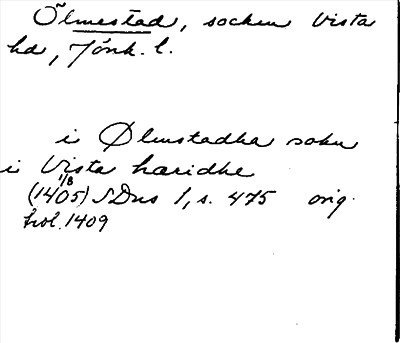 Ölmestad, socken Vista
hd, Jönk. l.
i Ølmstadha sokn
i Vista hæridhe
1/8
(1405) SDns 1, s. 475 orig.
1409